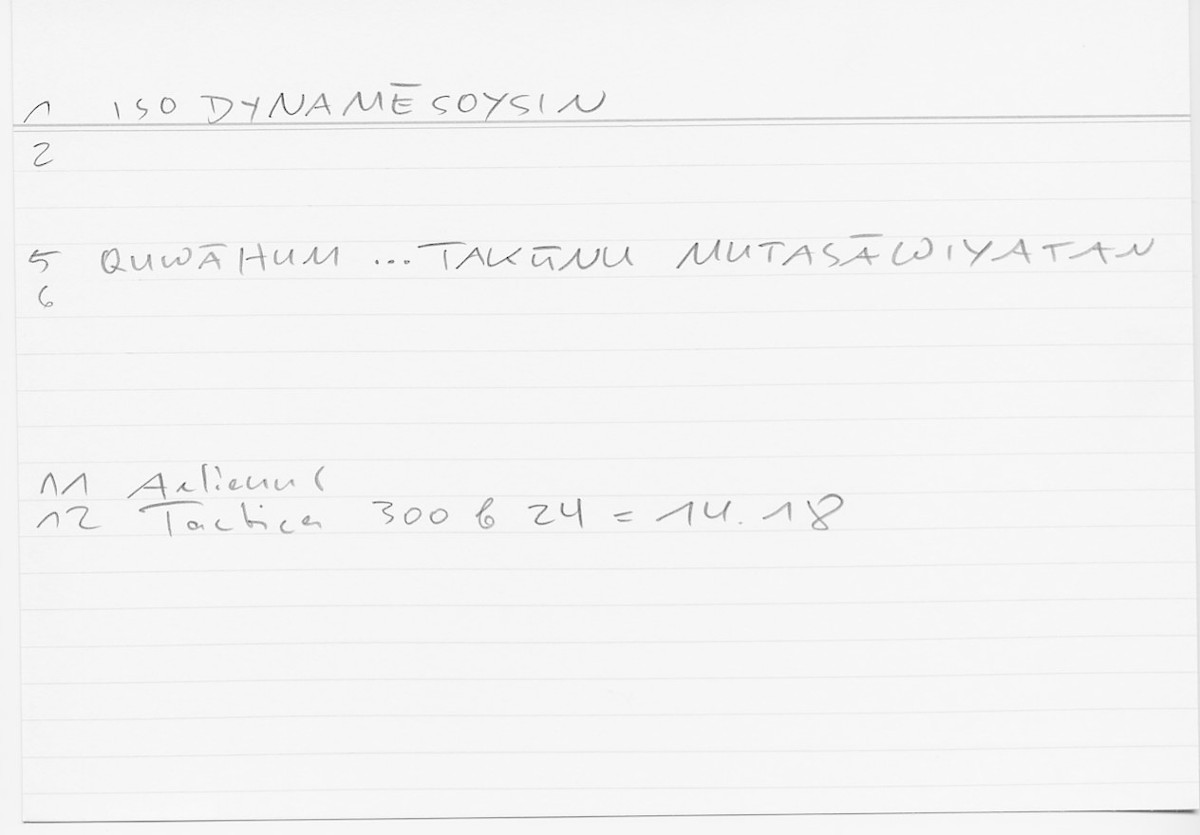 1 ISODYNAMĒSOYSIN
2
5 QUWĀHUM ... TAKŪNU MUTASĀWIYATAN
6
11 Aelianus
12 Tactica 300 b 24 = 14.18